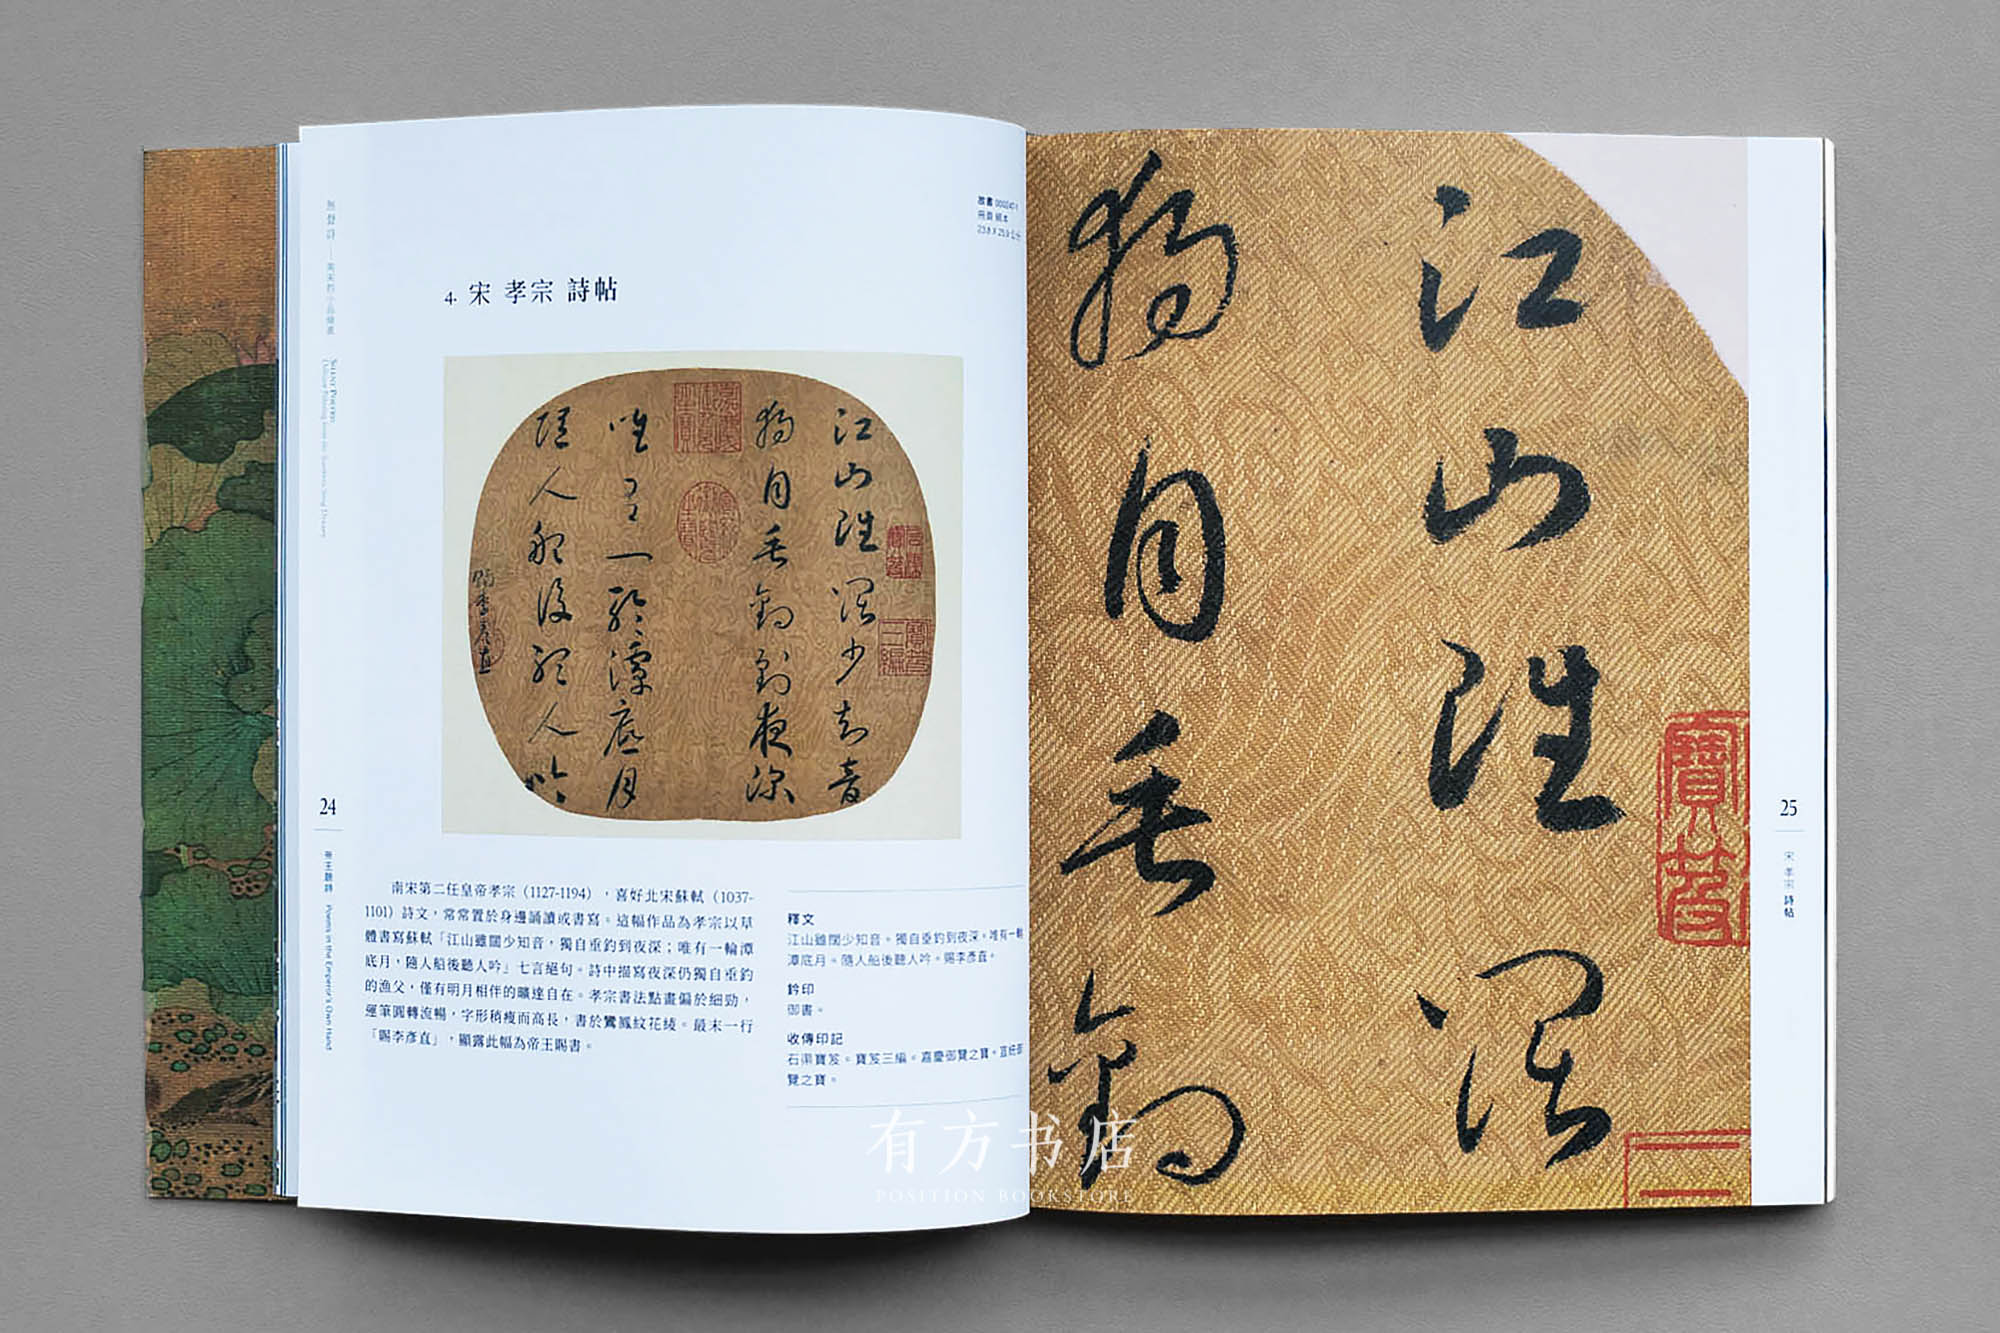 無聲詩──南宋的小品繪畫
SILENT POETRY:
24
帝王題詩 Poems in the Emperor's Own Hand
4. 宋 孝宗 詩帖
冊頁 絹本
江山雖闊少知音
獨自垂釣到夜深
唯有一輪潭底月
隨人船後聽人吟
賜李彥直
南宋第二任皇帝孝宗（1127-1194），喜好北宋蘇軾（1037-
1101）詩文，常常置於身邊誦讀或書寫。這幅作品為孝宗以草
體書寫蘇軾「江山雖闊少知音，獨自垂釣到夜深；唯有一輪潭
底月，隨人船後聽人吟」七言絕句。詩中描寫夜深仍獨自垂釣
的漁父，僅有明月相伴的曠達自在。孝宗書法點畫偏於細勁，
運筆圓轉流暢，字形稍瘦而高長，書於鸞鳳紋花綾。最末一行
「賜李彥直」，顯露此幅為帝王賜書。
釋文
江山雖闊少知音。獨自垂釣到夜深。唯有一輪
潭底月。隨人船後聽人吟。賜李彥直。
鈐印
御書。
收傳印記
石渠寶笈。寶笈三編。嘉慶御覽之寶。宣統御
覽之寶。
江山雖闊
獨自垂釣
寶笈
三
25
宋 孝宗 詩帖
有方书店
POSITION BOOKSTORE